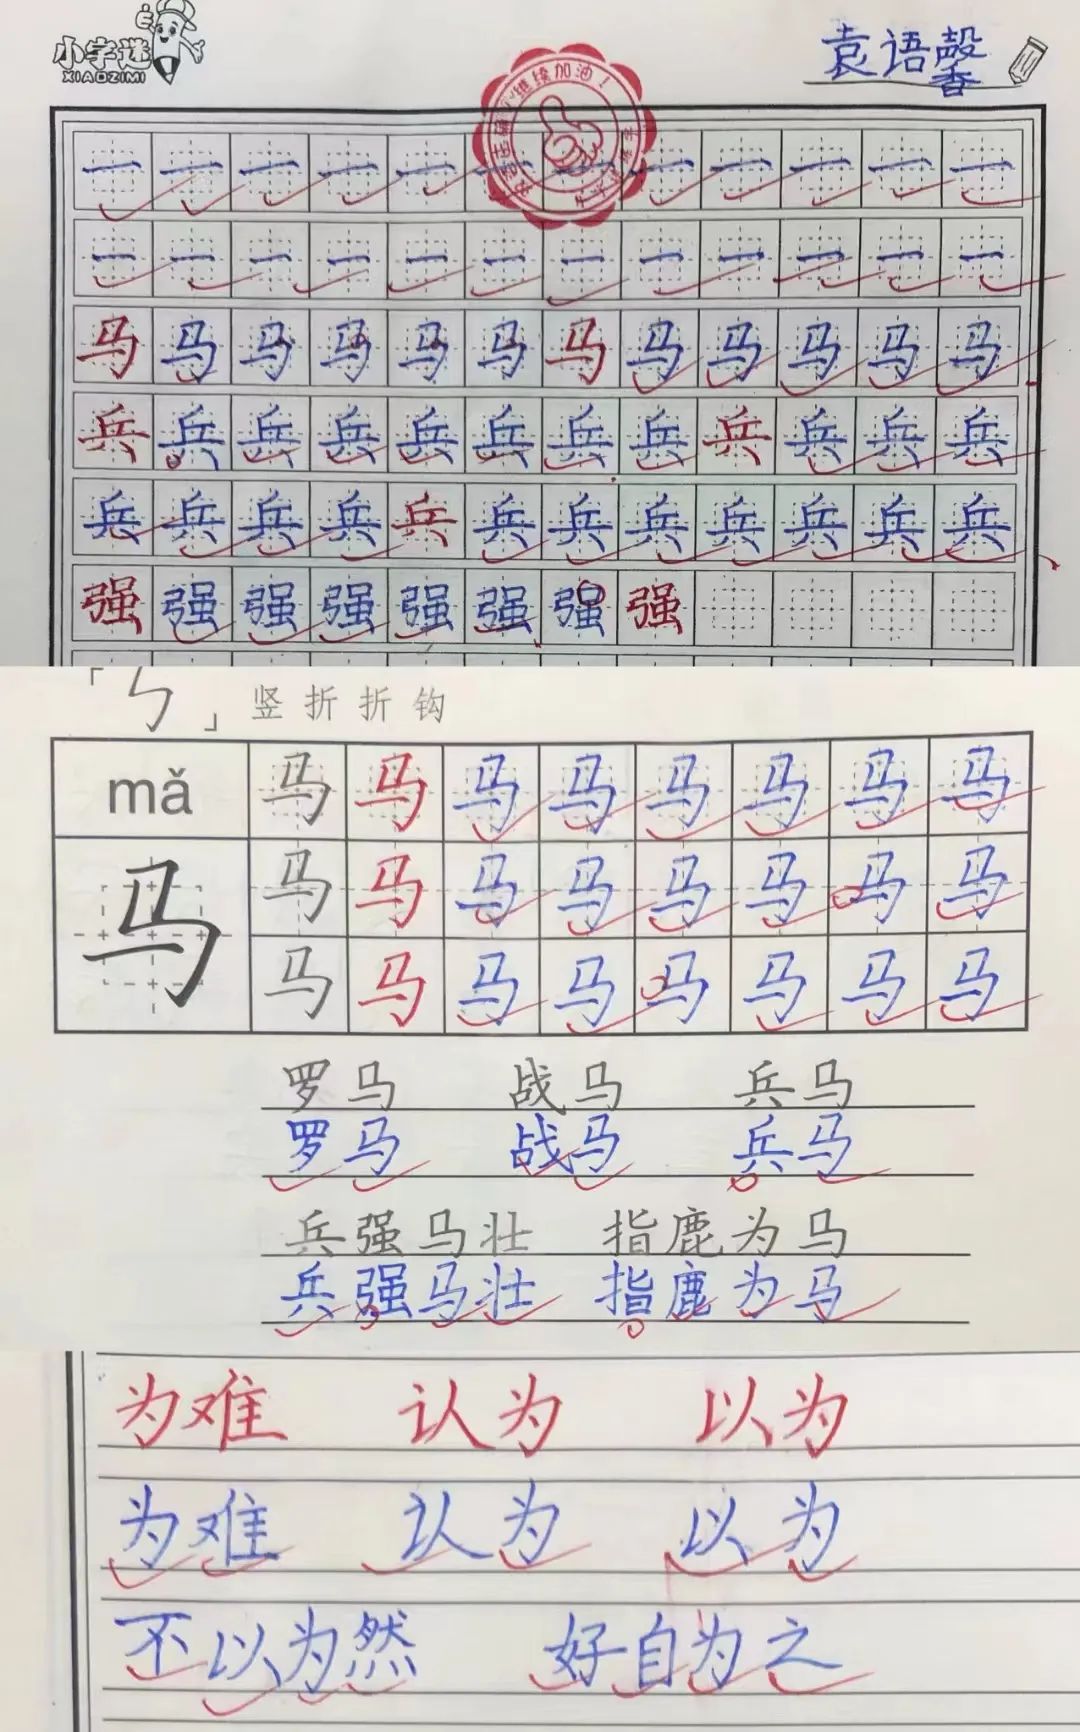 小字迷
XIAOZIMI
袁语馨
继续加油！
一 一 一 一 一 一 一 一 一 一 一 一
一 一 一 一 一 一 一 一 一 一 一 一
马 马 马 马 马 马 马 马 马 马 马 马
兵 兵 兵 兵 兵 兵 兵 兵 兵 兵 兵 兵
兵 兵 兵 兵 兵 兵 兵 兵 兵 兵 兵 兵
强 强 强 强 强 强 强 强
「㇉」竖折折钩
mǎ 马 马 马 马 马 马 马 马
马 马 马 马 马 马 马 马 马
马 马 马 马 马 马 马 马
罗马 战马 兵马
罗马 战马 兵马
兵强马壮 指鹿为马
兵强马壮 指鹿为马
为难 认为 以为
为难 认为 以为
不以为然 好自为之